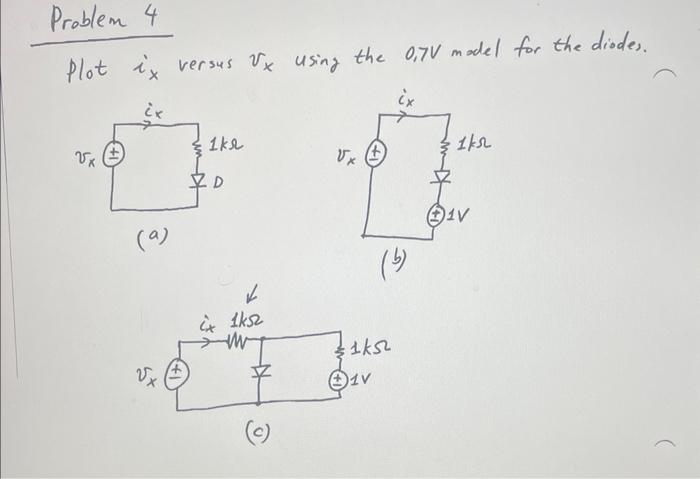 Problem 4
Plot ix versus vx using the 0,7V model for the diodes.
ix
vx ± 1kΩ
D
(a)
ix
vx ± 1kΩ
± 1V
(b)
ix 1kΩ
1kΩ
vx ± ± 1V
(c)